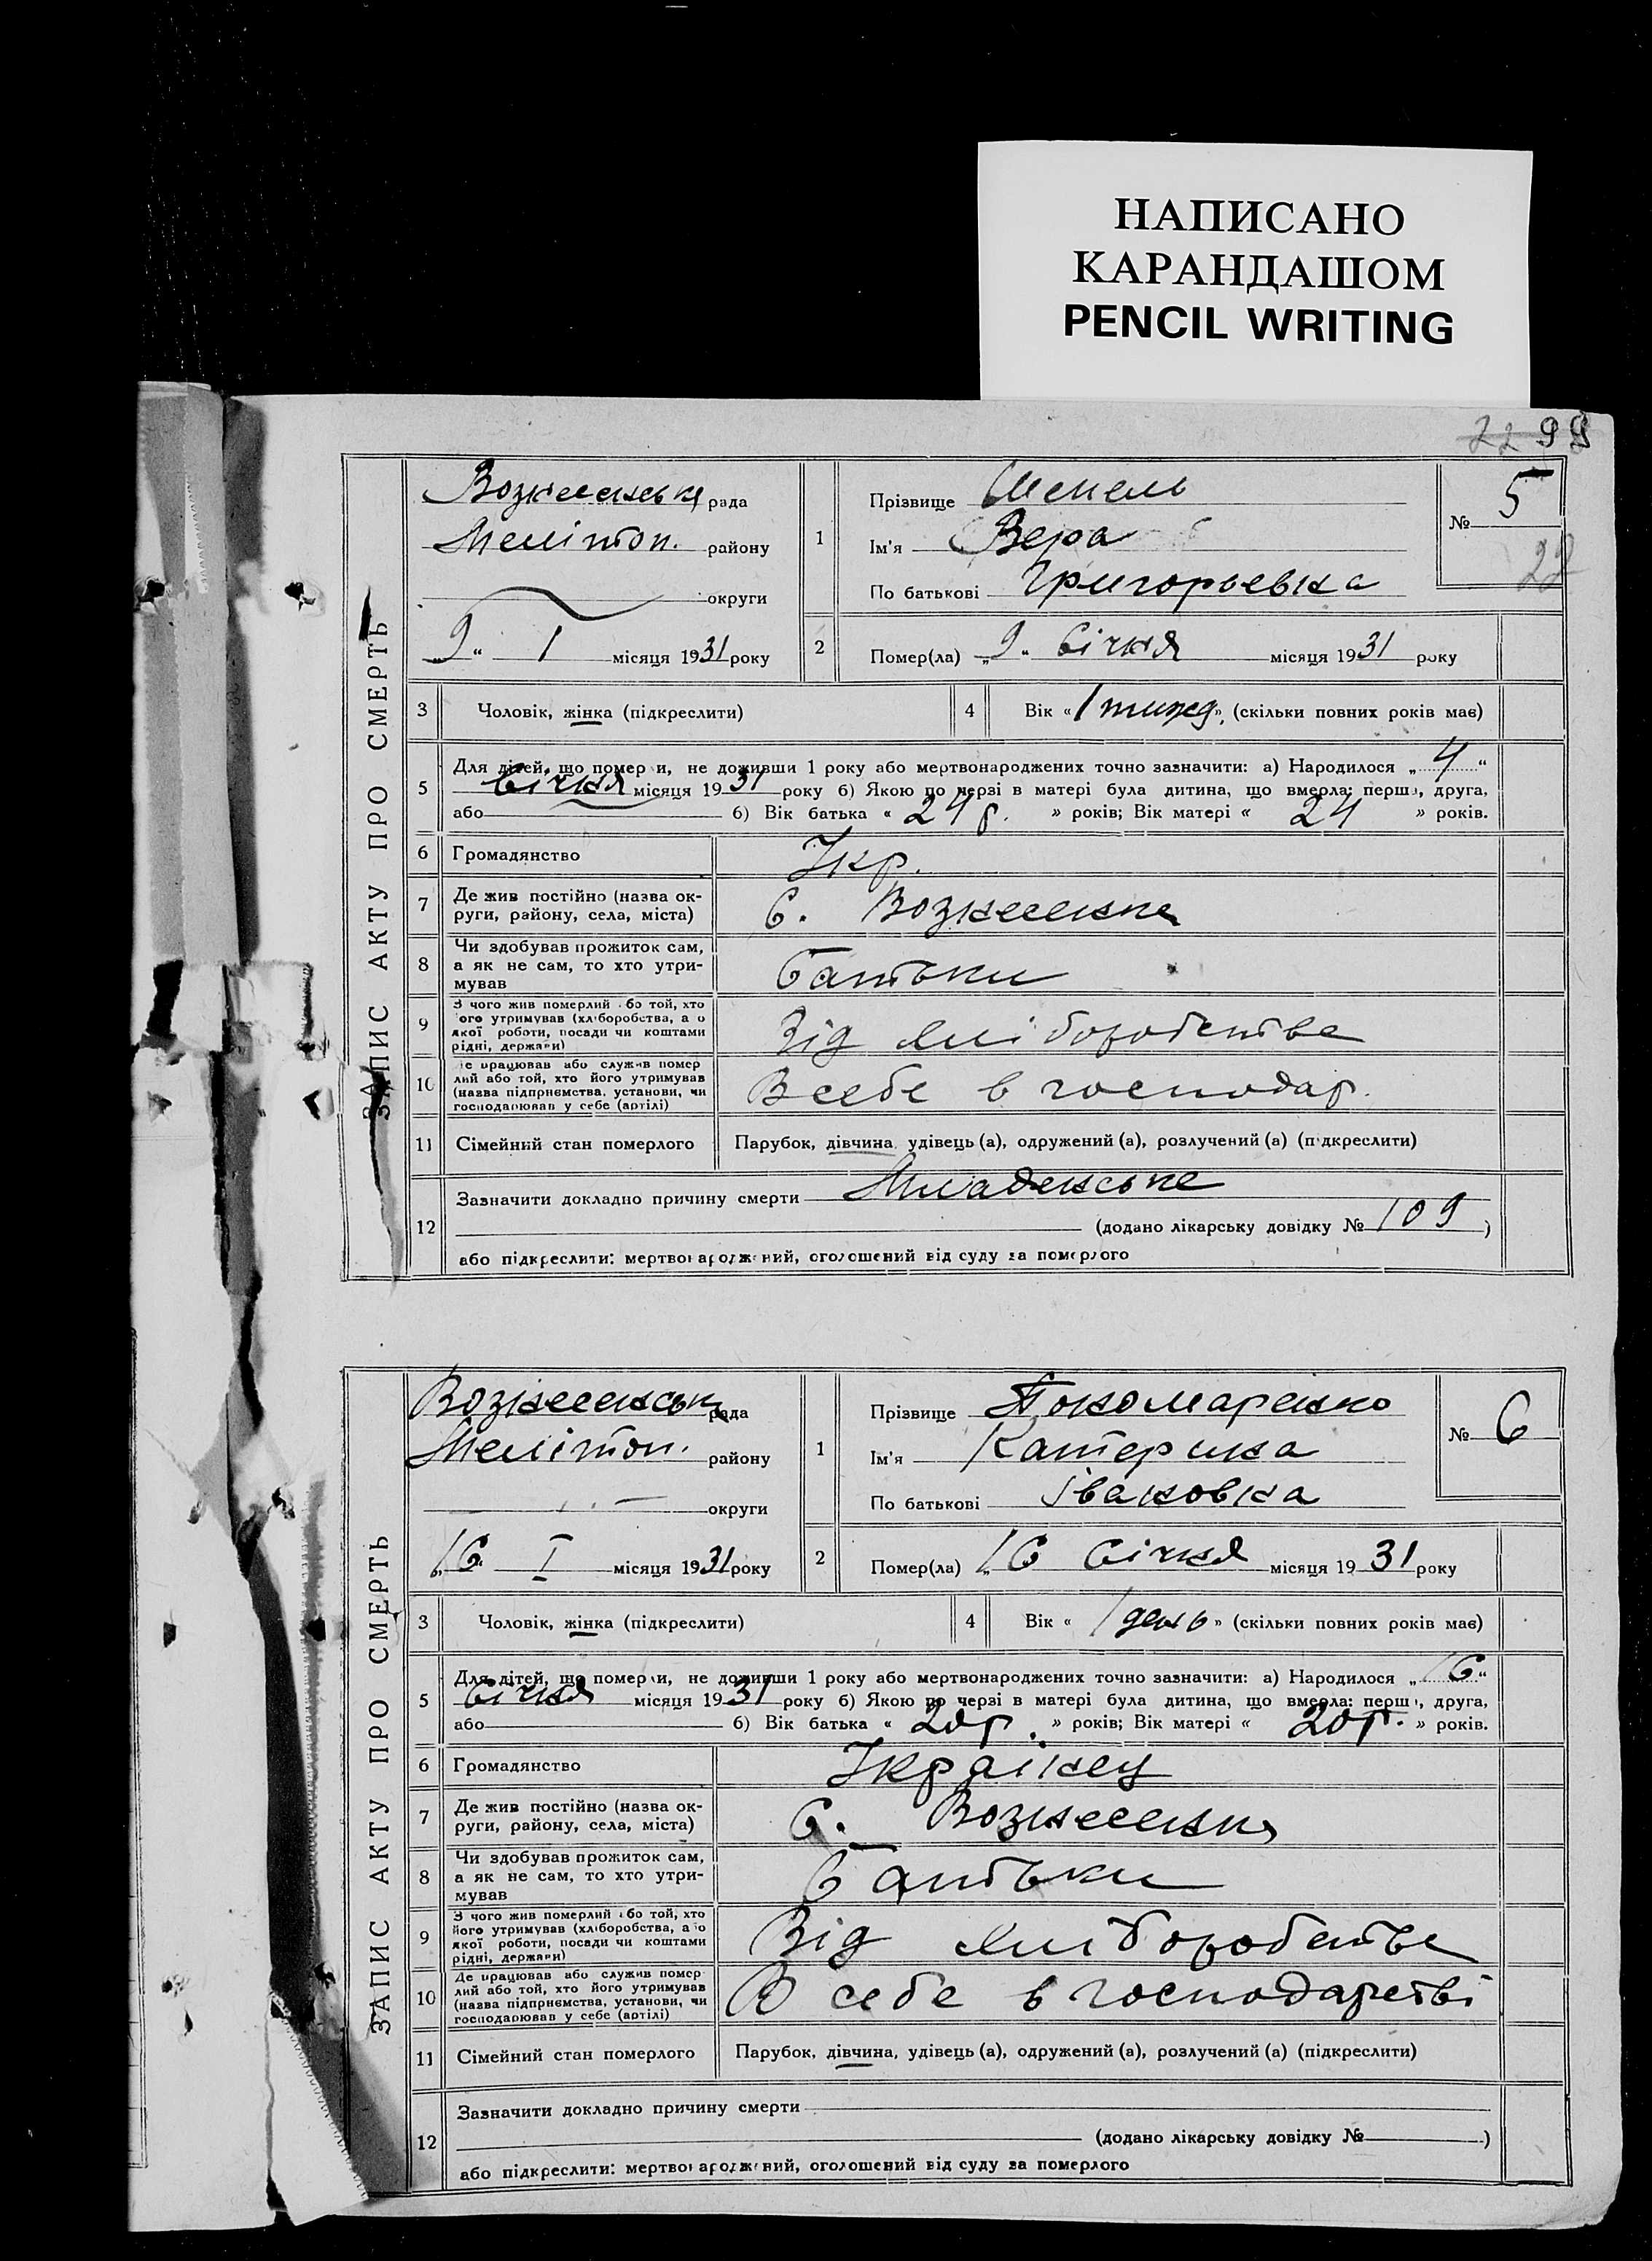 НАПИСАНО
КАРАНДАШОМ
PENCIL WRITING
22 99
ЗАПИС АКТУ ПРО СМЕРТЬ
Вознесенськ рада
Меліто​п. району
округи
„9“ 1 місяця 1931 року
1
Прізвище
Ім'я Вера
По батькові Григорьевна
№ 5
22
2 Помер(ла) „9“ Січня місяця 1931 року
3 Чоловік, жінка (підкреслити)
4 Вік «1 тижд», (скільки повних років має)
5 Для дітей, що померли, не доживши 1 року або мертвонароджених точно зазначити: а) Народилося „4“
Січня місяця 1931 року б) Якою по черзі в матері була дитина, що вмерла: перша, друга,
або б) Вік батька «24 р.» років; Вік матері «24» років.
6 Громадянство Укр.
7 Де жив постійно (назва ок-
руги, району, села, міста) С. Вознесенка
8 Чи здобував прожиток сам,
а як не сам, то хто утри-
мував Батьки
9 З чого жив померлий або той, хто
його утримував (хліборобства, а о
якої роботи, посади чи коштами
рідні, держави) Від хліборобства
10 Де працював або служив помер
лий або той, хто його утримував
(назва підприємства, установи, чи
господарював у себе (артілі) В себе в господар.
11 Сімейний стан померлого Парубок, дівчина, удівець (а), одружений (а), розлучений (а) (підкреслити)
12 Зазначити докладно причину смерти Младенське
(додано лікарську довідку № 109)
або підкреслити: мертвонароджений, оголошений від суду за померлого
ЗАПИС АКТУ ПРО СМЕРТЬ
Вознесенськ рада
Меліто​п. району
округи
„16“ I місяця 1931 року
1
Прізвище Пономаренко
Ім'я Катерина
По батькові Івановна
№ 6
2 Помер(ла) „16 Січня місяця 1931 року
3 Чоловік, жінка (підкреслити)
4 Вік «1 день» (скільки повних років має)
5 Для дітей, що померли, не доживши 1 року або мертвонароджених точно зазначити: а) Народилося „16“
Січня місяця 1931 року б) Якою по черзі в матері була дитина, що вмерла: перша, друга,
або б) Вік батька «20 р.» років; Вік матері «20 р.» років.
6 Громадянство Українец
7 Де жив постійно (назва ок-
руги, району, села, міста) С. Вознесенка
8 Чи здобував прожиток сам,
а як не сам, то хто утри-
мував Батьки
9 З чого жив померлий або той, хто
його утримував (хліборобства, а о
якої роботи, посади чи коштами
рідні, держави) Від хліборобства
10 Де працював або служив помер
лий або той, хто його утримував
(назва підприємства, установи, чи
господарював у себе (артілі) В себе в господарстві
11 Сімейний стан померлого Парубок, дівчина, удівець (а), одружений (а), розлучений (а) (підкреслити)
12 Зазначити докладно причину смерти
(додано лікарську довідку № )
або підкреслити: мертвонароджений, оголошений від суду за померлого